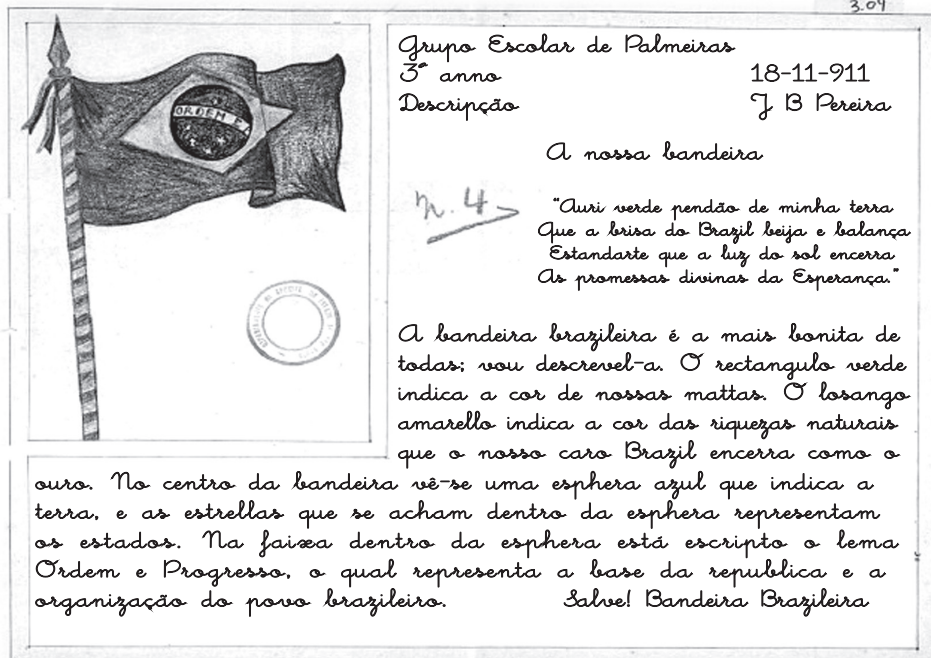 3.04
Grupo Escolar de Palmeiras
3º anno
18-11-911
Descripção
J B Pereira
A nossa bandeira
n. 4
"Auri verde pendão de minha terra
Que a brisa do Brazil beija e balança
Estandarte que a luz do sol encerra
As promessas divinas da Esperança."
ORDEM E
A bandeira brazileira é a mais bonita de
todas; vou descrevel-a. O rectangulo verde
indica a cor de nossas mattas. O losango
amarello indica a cor das riquezas naturais
que o nosso caro Brazil encerra como o
ouro. No centro da bandeira vê-se uma esphera azul que indica a
terra, e as estrellas que se acham dentro da esphera representam
os estados. Na faixa dentro da esphera está escripto o lema
Ordem e Progresso, o qual representa a base da republica e a
organização do povo brazileiro.
Salve! Bandeira Brazileira